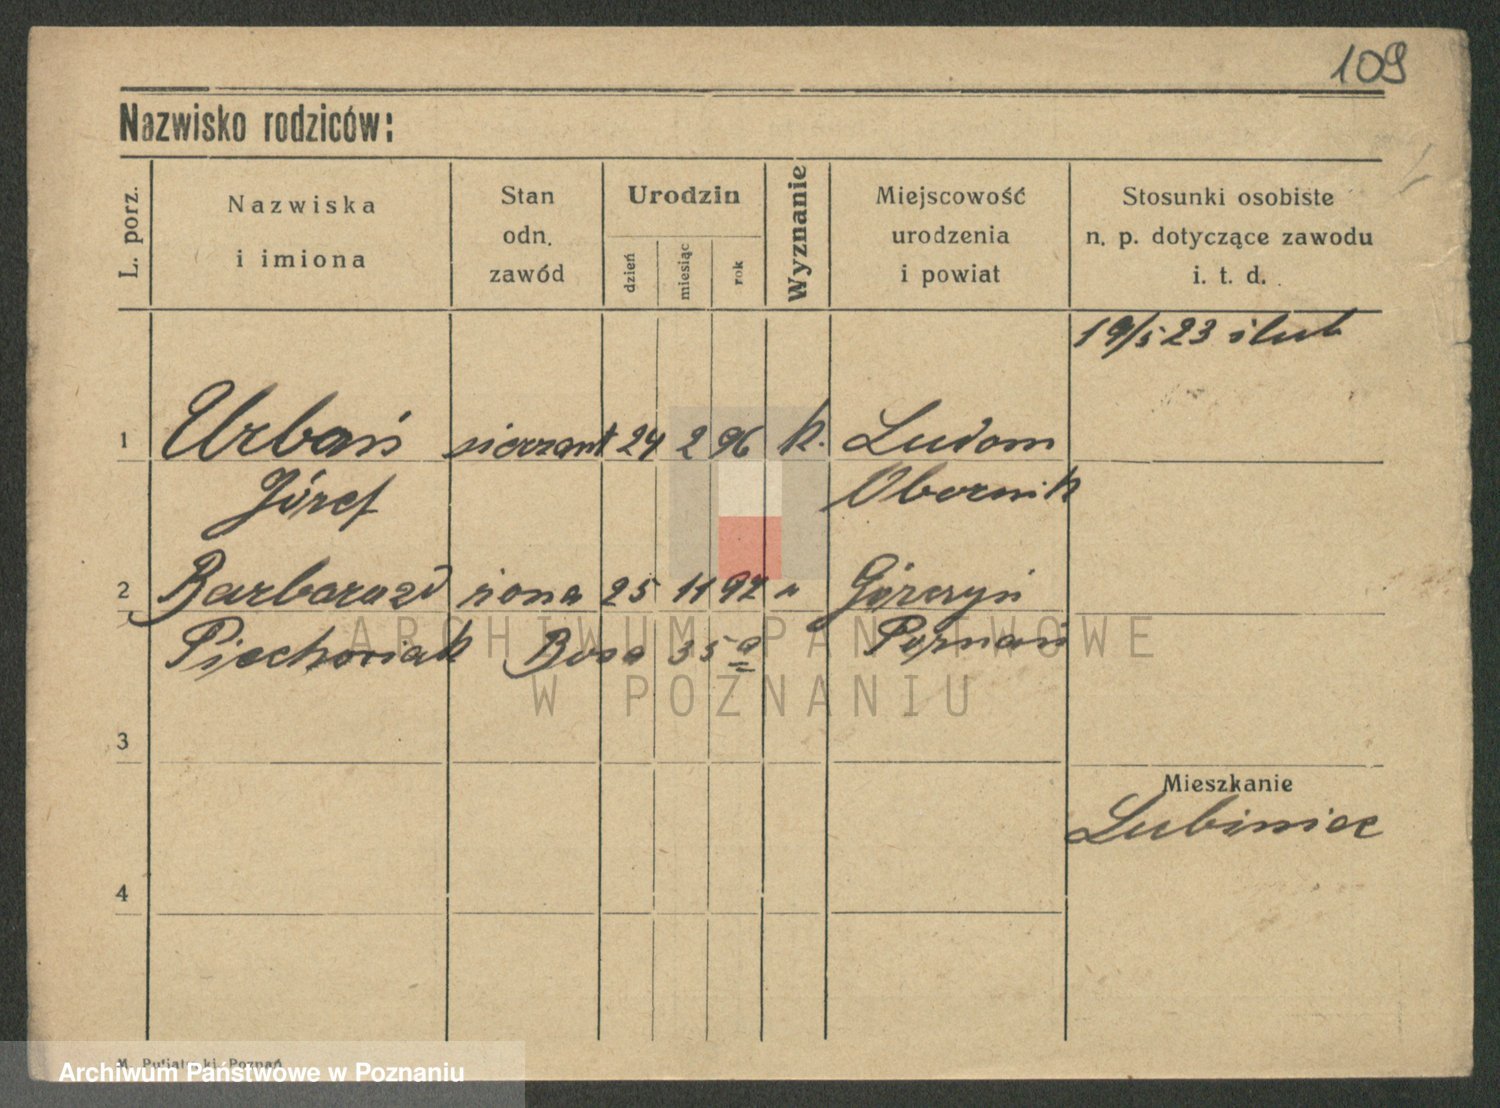 109
Nazwisko rodziców:
L. porz.
Nazwiska
i imiona
Stan
odn.
zawód
Urodzin
dzień
miesiąc
rok
Wyznanie
Miejscowość
urodzenia
i powiat
Stosunki osobiste
n. p. dotyczące zawodu
i. t. d.
19/5 23 ślub
1 Urbań sierzant 24 2 96 k. Ludom
Józef Obornik
2 Barbara zd żona 25 11 97 " Górczyn
Piechowiak Bosa 35 a Poznań
3
Mieszkanie
Lubiniec
4
ARCHIWUM PAŃSTWOWE
W POZNANIU
M. Putiatycki, Poznań
Archiwum Państwowe w Poznaniu